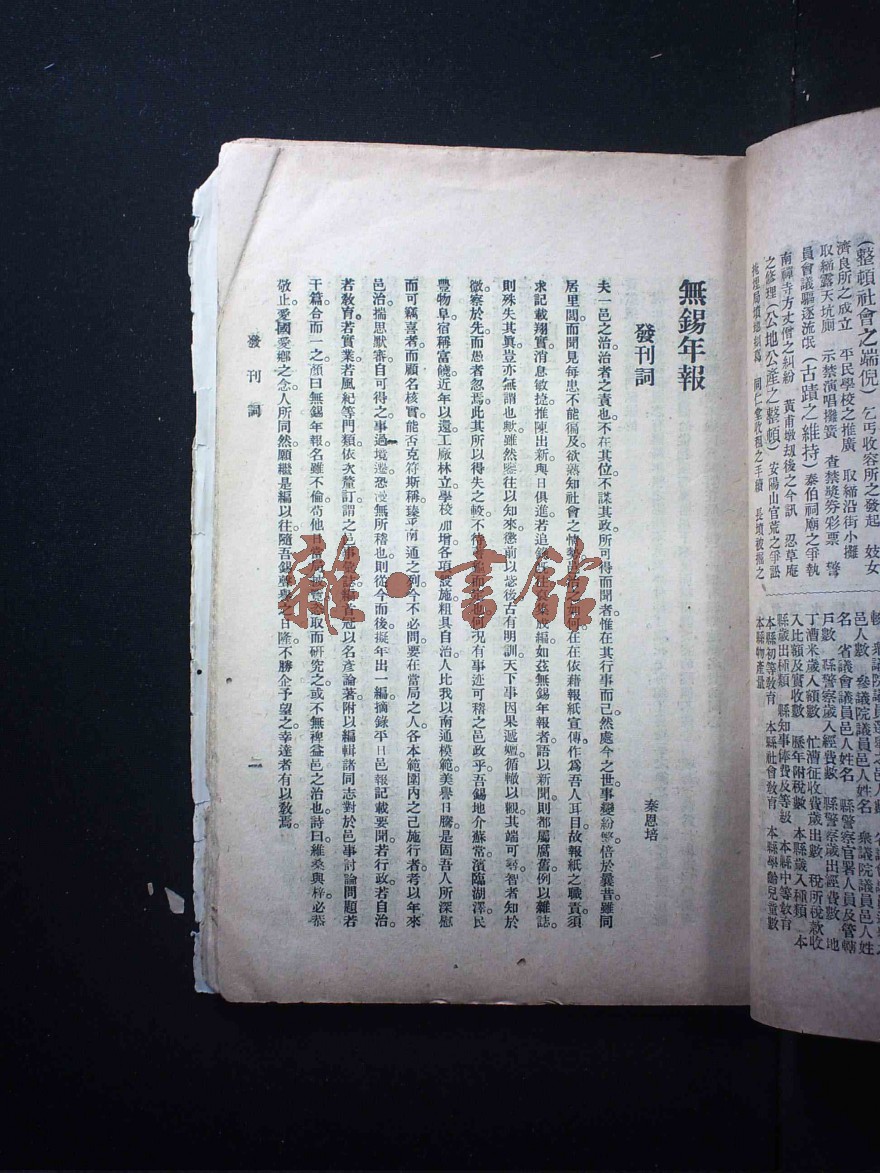 (整頓社會之端倪) 乞丐收容所之發起 妓女
濟良所之成立 平民學校之推廣 取締沿街小攤
取締露天坑廁 示禁演唱攤簧 查禁獎券彩票 警
員會議驅逐流氓 (古蹟之維持) 泰伯祠廟之爭執
南禪寺方丈僧之糾紛 黃甫墩刼後之今訊 忍草庵
之修理 (公地公產之整頓) 安陽山官荒之爭訟
同仁堂收租之手續 長墳被掘之
邑人數 參議院議員邑人姓名 眾議院議員邑人姓
名 省議會議員邑人姓名 縣警察官署人員及管轄
戶數 縣警察歲入經費數 縣警察歲出經費數 地
丁漕米歲入額數 忙漕征收費歲出數 稅所稅款收
入比額及實收數 歷年附稅數 本縣歲入種類 本
縣歲出種類 縣知事俸費及等級 本縣中等教育
本縣初等教育 本縣社會教育 本縣學齡兒童數
本縣物產量
無錫年報
發刊詞
秦恩培
夫一邑之治治者之責也不在其位不謀其政所可得而聞者惟在其行事而已然處今之世事變紛繁倍於曩昔雖同
居里閭而聞見每患不能徧及欲熟知社會之情勢邑治之如何在在依藉報紙宣傳作為吾人耳目故報紙之職責須
求記載翔實消息敏捷推陳出新與日俱進若追錄既往裒集成編如茲無錫年報者語以新聞則都屬腐舊例以雜誌
則殊失其真豈亦無謂也歟雖然鑒往以知來懲前以毖後古有明訓天下事因果遞嬗循轍以觀其端可尋智者知於
徵察於先而愚者忽焉此其所以得失之較不待蓍龜而定也何況有事迹可稽之邑政乎吾錫地介蘇常濱臨湖澤民
豐物阜宿稱富饒近年以還工廠林立學校加增各項設施粗具自治人比我以南通模範美譽日騰是固吾人所深慰
而可竊喜者而顧名核實能否克符斯稱臻乎南通之列今不必問要在當局之人各本範圍內之已施行者考以年來
邑治揣思默審自可得之事過境遷恐漫無所稽也則從今而後擬年出一編摘錄平日邑報記載要聞若行政若自治
若教育若實業若風紀等門類依次釐訂謂之邑事彙誌編首冠以名彥論著附以編輯諸同志對於邑事討論問題若
干篇合而一之顏曰無錫年報名雖不倫苟他日當局披覽念取而研究之或不無裨益邑之治也詩曰維桑與梓必恭
敬止愛國愛鄉之念人所同然願繼是編以往隨吾錫聲譽之日隆不勝企予望之幸達者有以教焉
發刊詞
一
雜·書館